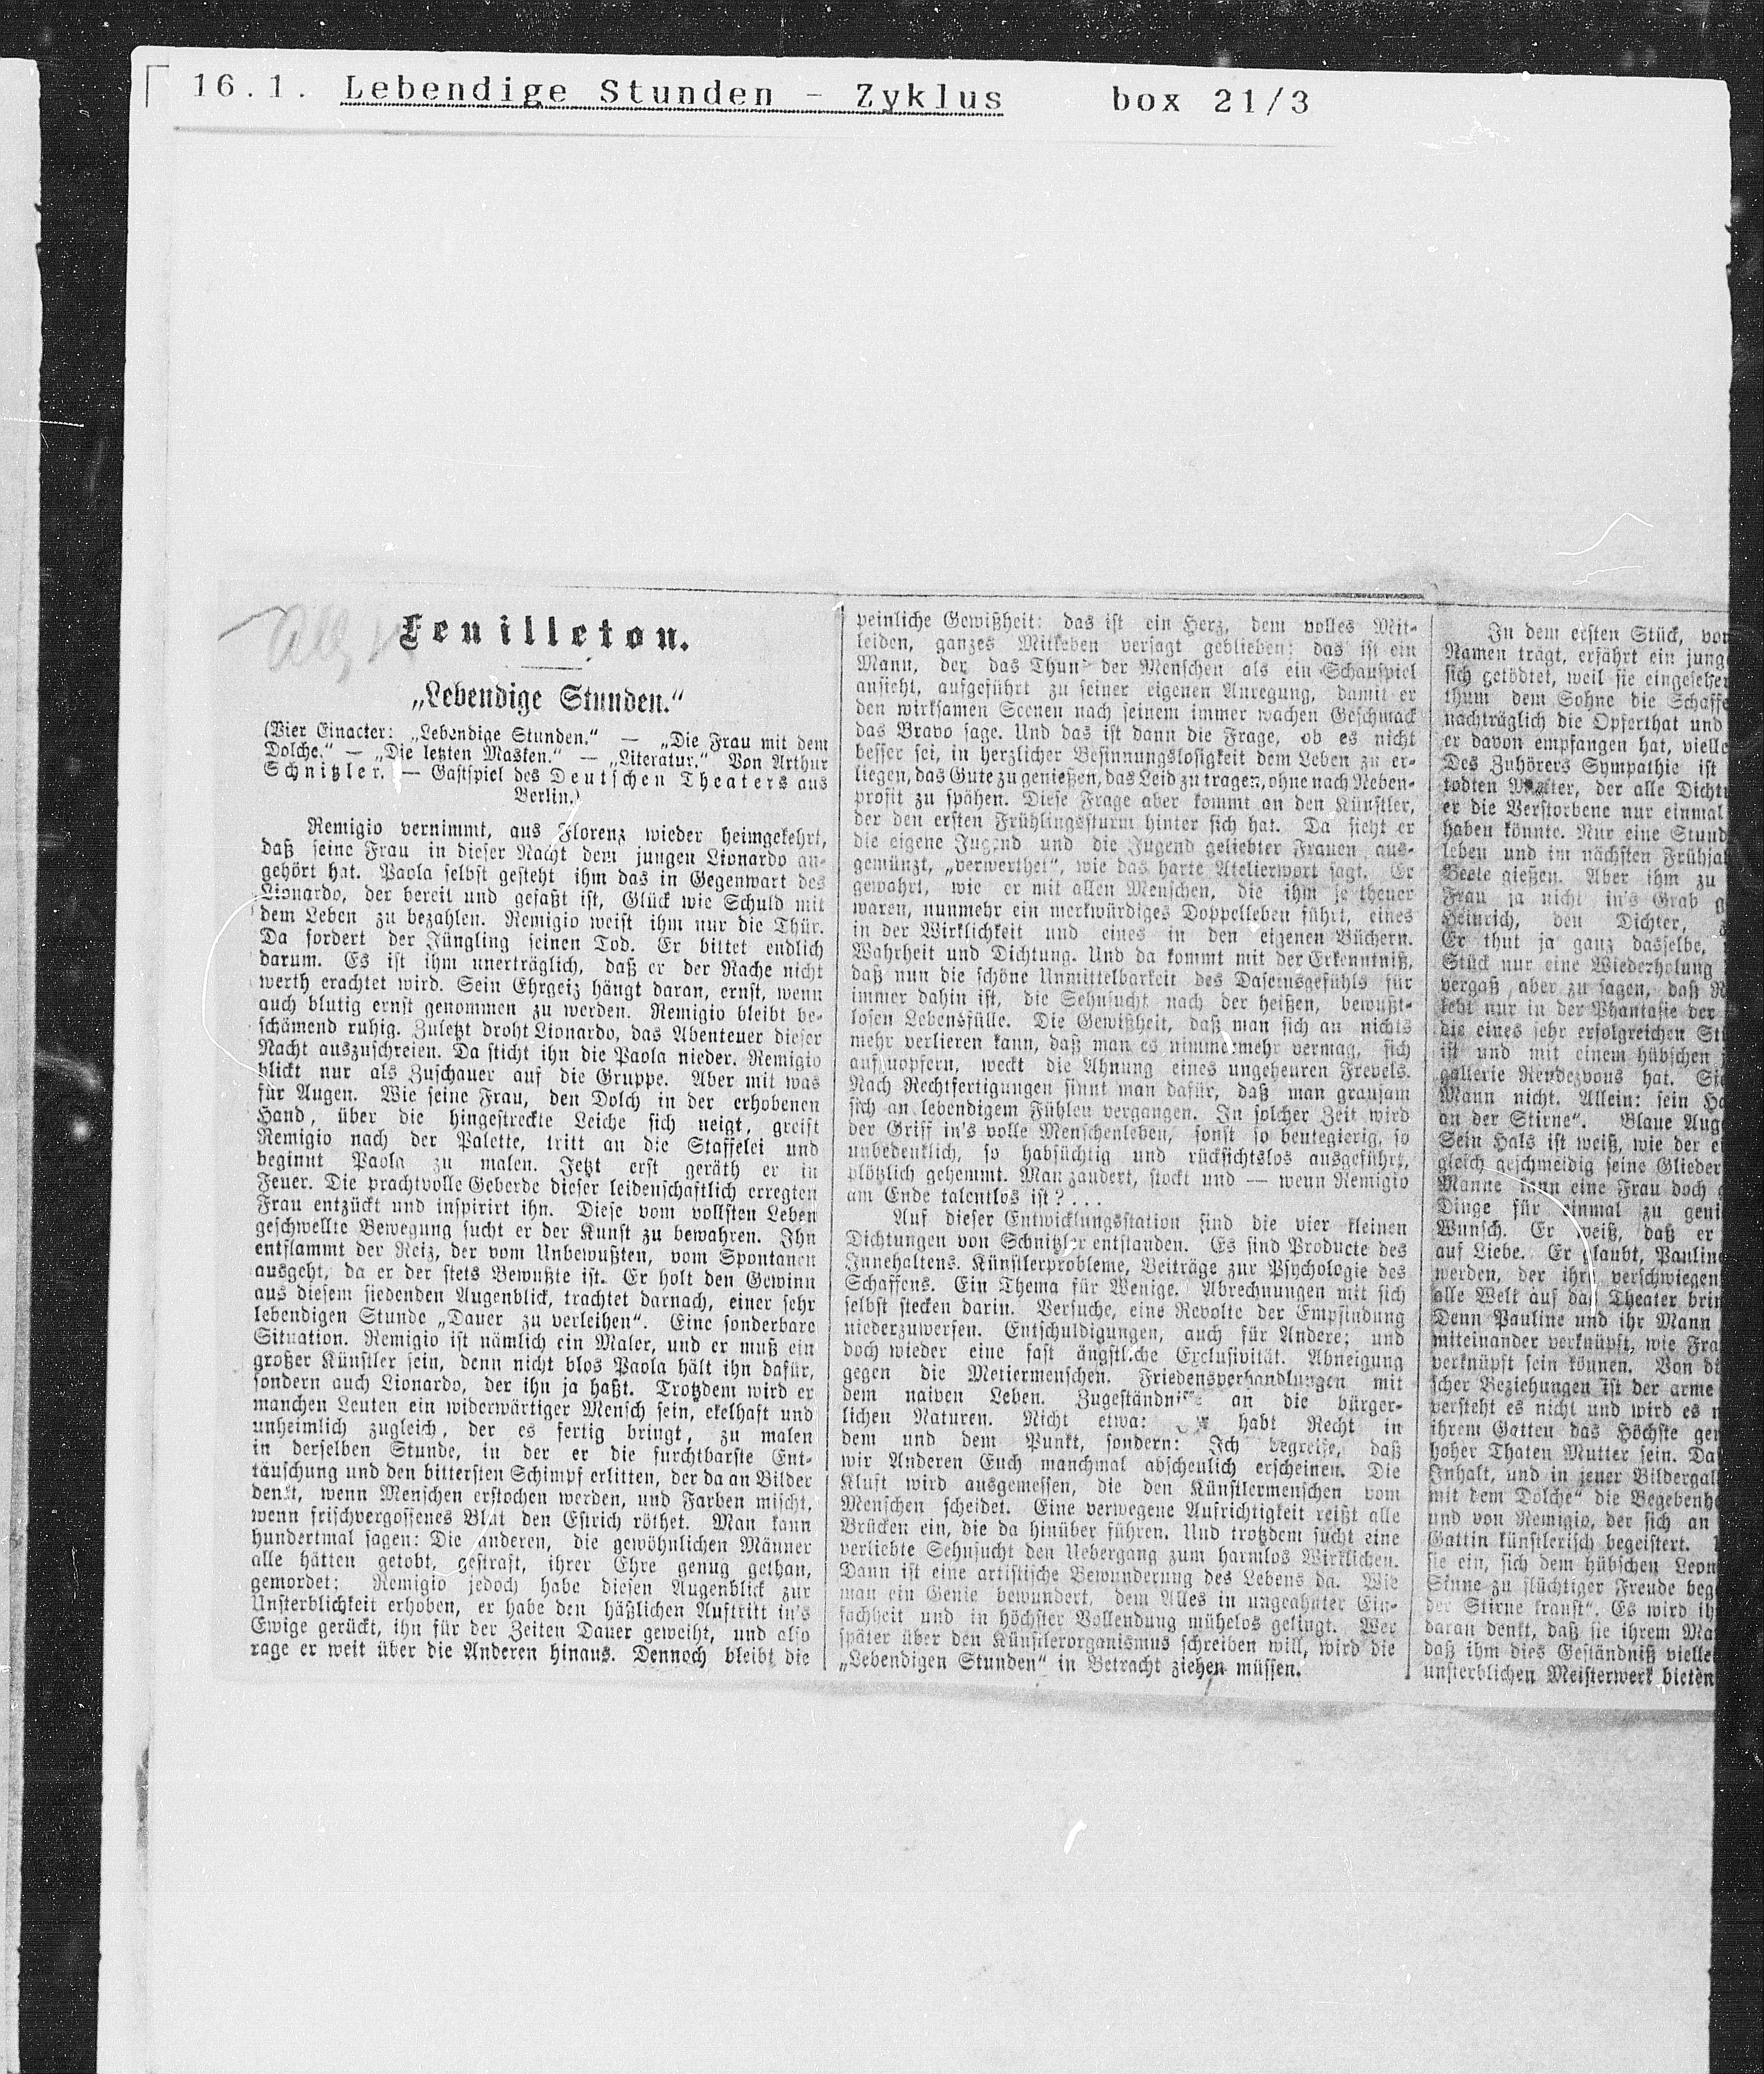 16.1. Lebendige Stunden - Zyklus box 21/3
Feuilleton.
„Lebendige Stunden.“
(Vier Einacter: „Lebendige Stunden.“ — „Die Frau mit dem
Dolche.“ — „Die letzten Masken.“ — „Literatur.“ Von Arthur
Schnitzler. — Gastspiel des Deutschen Theaters aus
Berlin.)
Remigio vernimmt, aus Florenz wieder heimgekehrt,
daß seine Frau in dieser Nacht dem jungen Lionardo an-
gehört hat. Paola selbst gesteht ihm das in Gegenwart des
Lionardo, der bereit und gefaßt ist, Glück wie Schuld mit
dem Leben zu bezahlen. Remigio weist ihm nur die Thür.
Da fordert der Jüngling seinen Tod. Er bittet endlich
darum. Es ist ihm unerträglich, daß er der Rache nicht
werth erachtet wird. Sein Ehrgeiz hängt daran, ernst, wenn
auch blutig ernst genommen zu werden. Remigio bleibt be-
schämend ruhig. Zuletzt droht Lionardo, das Abenteuer dieser
Nacht auszuschreien. Da sticht ihn die Paola nieder. Remigio
blickt nur als Zuschauer auf die Gruppe. Aber mit was
für Augen. Wie seine Frau, den Dolch in der erhobenen
Hand, über die hingestreckte Leiche sich neigt, greift
Remigio nach der Palette, tritt an die Staffelei und
beginnt Paola zu malen. Jetzt erst geräth er in
Feuer. Die prachtvolle Geberde dieser leidenschaftlich erregten
Frau entzückt und inspirirt ihn. Diese vom vollsten Leben
geschwellte Bewegung sucht er der Kunst zu bewahren. Ihn
entflammt der Reiz, der vom Unbewußten, vom Spontanen
ausgeht, da er der stets Bewußte ist. Er holt den Gewinn
aus diesem siedenden Augenblick, trachtet darnach, einer sehr
lebendigen Stunde „Dauer zu verleihen“. Eine sonderbare
Situation. Remigio ist nämlich ein Maler, und er muß ein
großer Künstler sein, denn nicht blos Paola hält ihn dafür,
sondern auch Lionardo, der ihn ja haßt. Trotzdem wird er
manchen Leuten ein widerwärtiger Mensch sein, ekelhaft und
unheimlich zugleich, der es fertig bringt, zu malen
in derselben Stunde, in der er die furchtbarste Ent-
täuschung und den bittersten Schimpf erlitten, der da an Bilder
denkt, wenn Menschen erstochen werden, und Farben mischt,
wenn frischvergossenes Blut den Estrich röthet. Man kann
hundertmal sagen: Die anderen, die gewöhnlichen Männer
alle hätten getobt, gestraft, ihrer Ehre genug gethan,
gemordet; Remigio jedoch habe diesen Augenblick zur
Unsterblichkeit erhoben, er habe den häßlichen Auftritt in's
Ewige gerückt, ihn für der Zeiten Dauer geweiht, und also
rage er weit über die Anderen hinaus. Dennoch bleibt die
peinliche Gewißheit: das ist ein Herz, dem volles Mit-
leiden, ganzes Mitleben versagt geblieben; das ist ein
Mann, der das Thun der Menschen als ein Schauspiel
ansieht, aufgeführt zu seiner eigenen Anregung, damit er
den wirksamen Scenen nach seinem immer wachen Geschmack
das Bravo sage. Und das ist dann die Frage, ob es nicht
besser sei, in herzlicher Besinnungslosigkeit dem Leben zu er-
liegen, das Gute zu genießen, das Leid zu tragen, ohne nach Neben-
profit zu spähen. Diese Frage aber kommt an den Künstler,
der den ersten Frühlingssturm hinter sich hat. Da sieht er
die eigene Jugend und die Jugend geliebter Frauen aus-
gemünzt, „verwerthet“, wie das harte Atelierwort sagt. Er
gewahrt, wie er mit allen Menschen, die ihm je theuer
waren, nunmehr ein merkwürdiges Doppelleben führt, eines
in der Wirklichkeit und eines in den eigenen Büchern.
Wahrheit und Dichtung. Und da kommt mit der Erkenntniß,
daß nun die schöne Unmittelbarkeit des Daseinsgefühls für
immer dahin ist, die Sehnsucht nach der heißen, bewußt-
losen Lebensfülle. Die Gewißheit, daß man sich an nichts
mehr verlieren kann, daß man es nimmermehr vermag, sich
aufzuopfern, weckt die Ahnung eines ungeheuren Frevels.
Nach Rechtfertigungen sinnt man dafür, daß man grausam
sich an lebendigem Fühlen vergangen. In solcher Zeit wird
der Griff in's volle Menschenleben, sonst so beutegierig, so
unbedenklich, so habsüchtig und rücksichtslos ausgeführt,
plötzlich gehemmt. Man zaudert, stockt und — wenn Remigio
am Ende talentlos ist? ...
Auf dieser Entwicklungsstation sind die vier kleinen
Dichtungen von Schnitzler entstanden. Es sind Producte des
Innehaltens. Künstlerprobleme, Beiträge zur Psychologie des
Schaffens. Ein Thema für Wenige. Abrechnungen mit sich
selbst stecken darin. Versuche, eine Revolte der Empfindung
niederzuwerfen. Entschuldigungen, auch für Andere; und
doch wieder eine fast ängstliche Exclusivität. Abneigung
gegen die Metiermenschen. Friedensverhandlungen mit
dem naiven Leben. Zugeständnisse an die bürger-
lichen Naturen. Nicht etwa: habt Recht in
dem und dem Punkt, sondern: Ich begreife, daß
wir Anderen Euch manchmal abscheulich erscheinen. Die
Kluft wird ausgemessen, die den Künstlermenschen vom
Menschen scheidet. Eine verwegene Aufrichtigkeit reißt alle
Brücken ein, die da hinüber führen. Und trotzdem sucht eine
verliebte Sehnsucht den Uebergang zum harmlos Wirklichen.
Dann ist eine artistische Bewunderung des Lebens da. Wie
man ein Genie bewundert, dem Alles in ungeahnter Ein-
fachheit und in höchster Vollendung mühelos gelingt. Wer
später über den Künstlerorganismus schreiben will, wird die
„Lebendigen Stunden“ in Betracht ziehen müssen.
In dem ersten Stück, von
Namen trägt, erfährt ein jung
sich getödtet, weil sie eingesehen
thum dem Sohne die Schaffe
nachträglich die Opferthat und
er davon empfangen hat, vielle
Des Zuhörers Sympathie ist
todten Mutter, der alle Dicht
er die Verstorbene nur einmal
haben könnte. Nur eine Stund
leben und im nächsten Frühja
Beete gießen. Aber ihm zu
Frau ja nicht in's Grab g
Heinrich, den Dichter,
Er thut ja ganz dasselbe,
Stück nur eine Wiederholung
vergaß aber zu sagen, daß R
lebt nur in der Phantasie der
die eines sehr erfolgreichen St
ist und mit einem hübschen
gallerie Rendezvous hat. Sie
Mann nicht. Allein: sein Ha
an der Stirne“. Blaue Aug
Sein Hals ist weiß, wie der e
gleich geschmeidig seine Glieder
Manne kann eine Frau doch
Dinge für einmal zu geni
Wunsch. Er weiß, daß er
auf Liebe. Er glaubt, Pauline
werden, der ihr verschwiegen
alle Welt auf das Theater brin
Denn Pauline und ihr Mann
miteinander verknüpft, wie Fra
verknüpft sein können. Von di
scher Beziehungen ist der arme
versteht es nicht und wird es n
ihrem Gatten das Höchste ge
hoher Thaten Mutter sein. Da
Inhalt, und in jener Bildergal
mit dem Dolche“ die Begebenh
und von Remigio, der sich an
Gattin künstlerisch begeistert.
sie ein, sich dem hübschen Leon
Sinne zu flüchtiger Freude beg
der Stirne kraust“. Es wird ih
daran denkt, daß sie ihrem Ma
daß ihm dies Geständniß vielle
unsterblichen Meisterwerk bieten